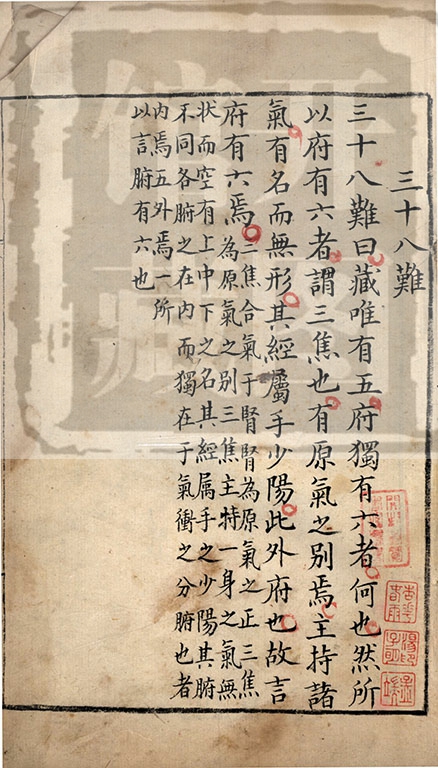 三十八難
三十八難曰藏唯有五府獨有六者何也然所
以府有六者謂三焦也有原氣之别焉主持諸
氣有名而無形其經屬手少陽此外府也故言
府有六焉
三焦合氣于腎腎為原氣之正三焦
為原氣之别三焦主特一身之氣無
状而空有上中下之名其經属手之少陽其腑
不同各腑之在内而獨在于氣衝之分腑也者
内焉五外焉一所
以言腑有六也